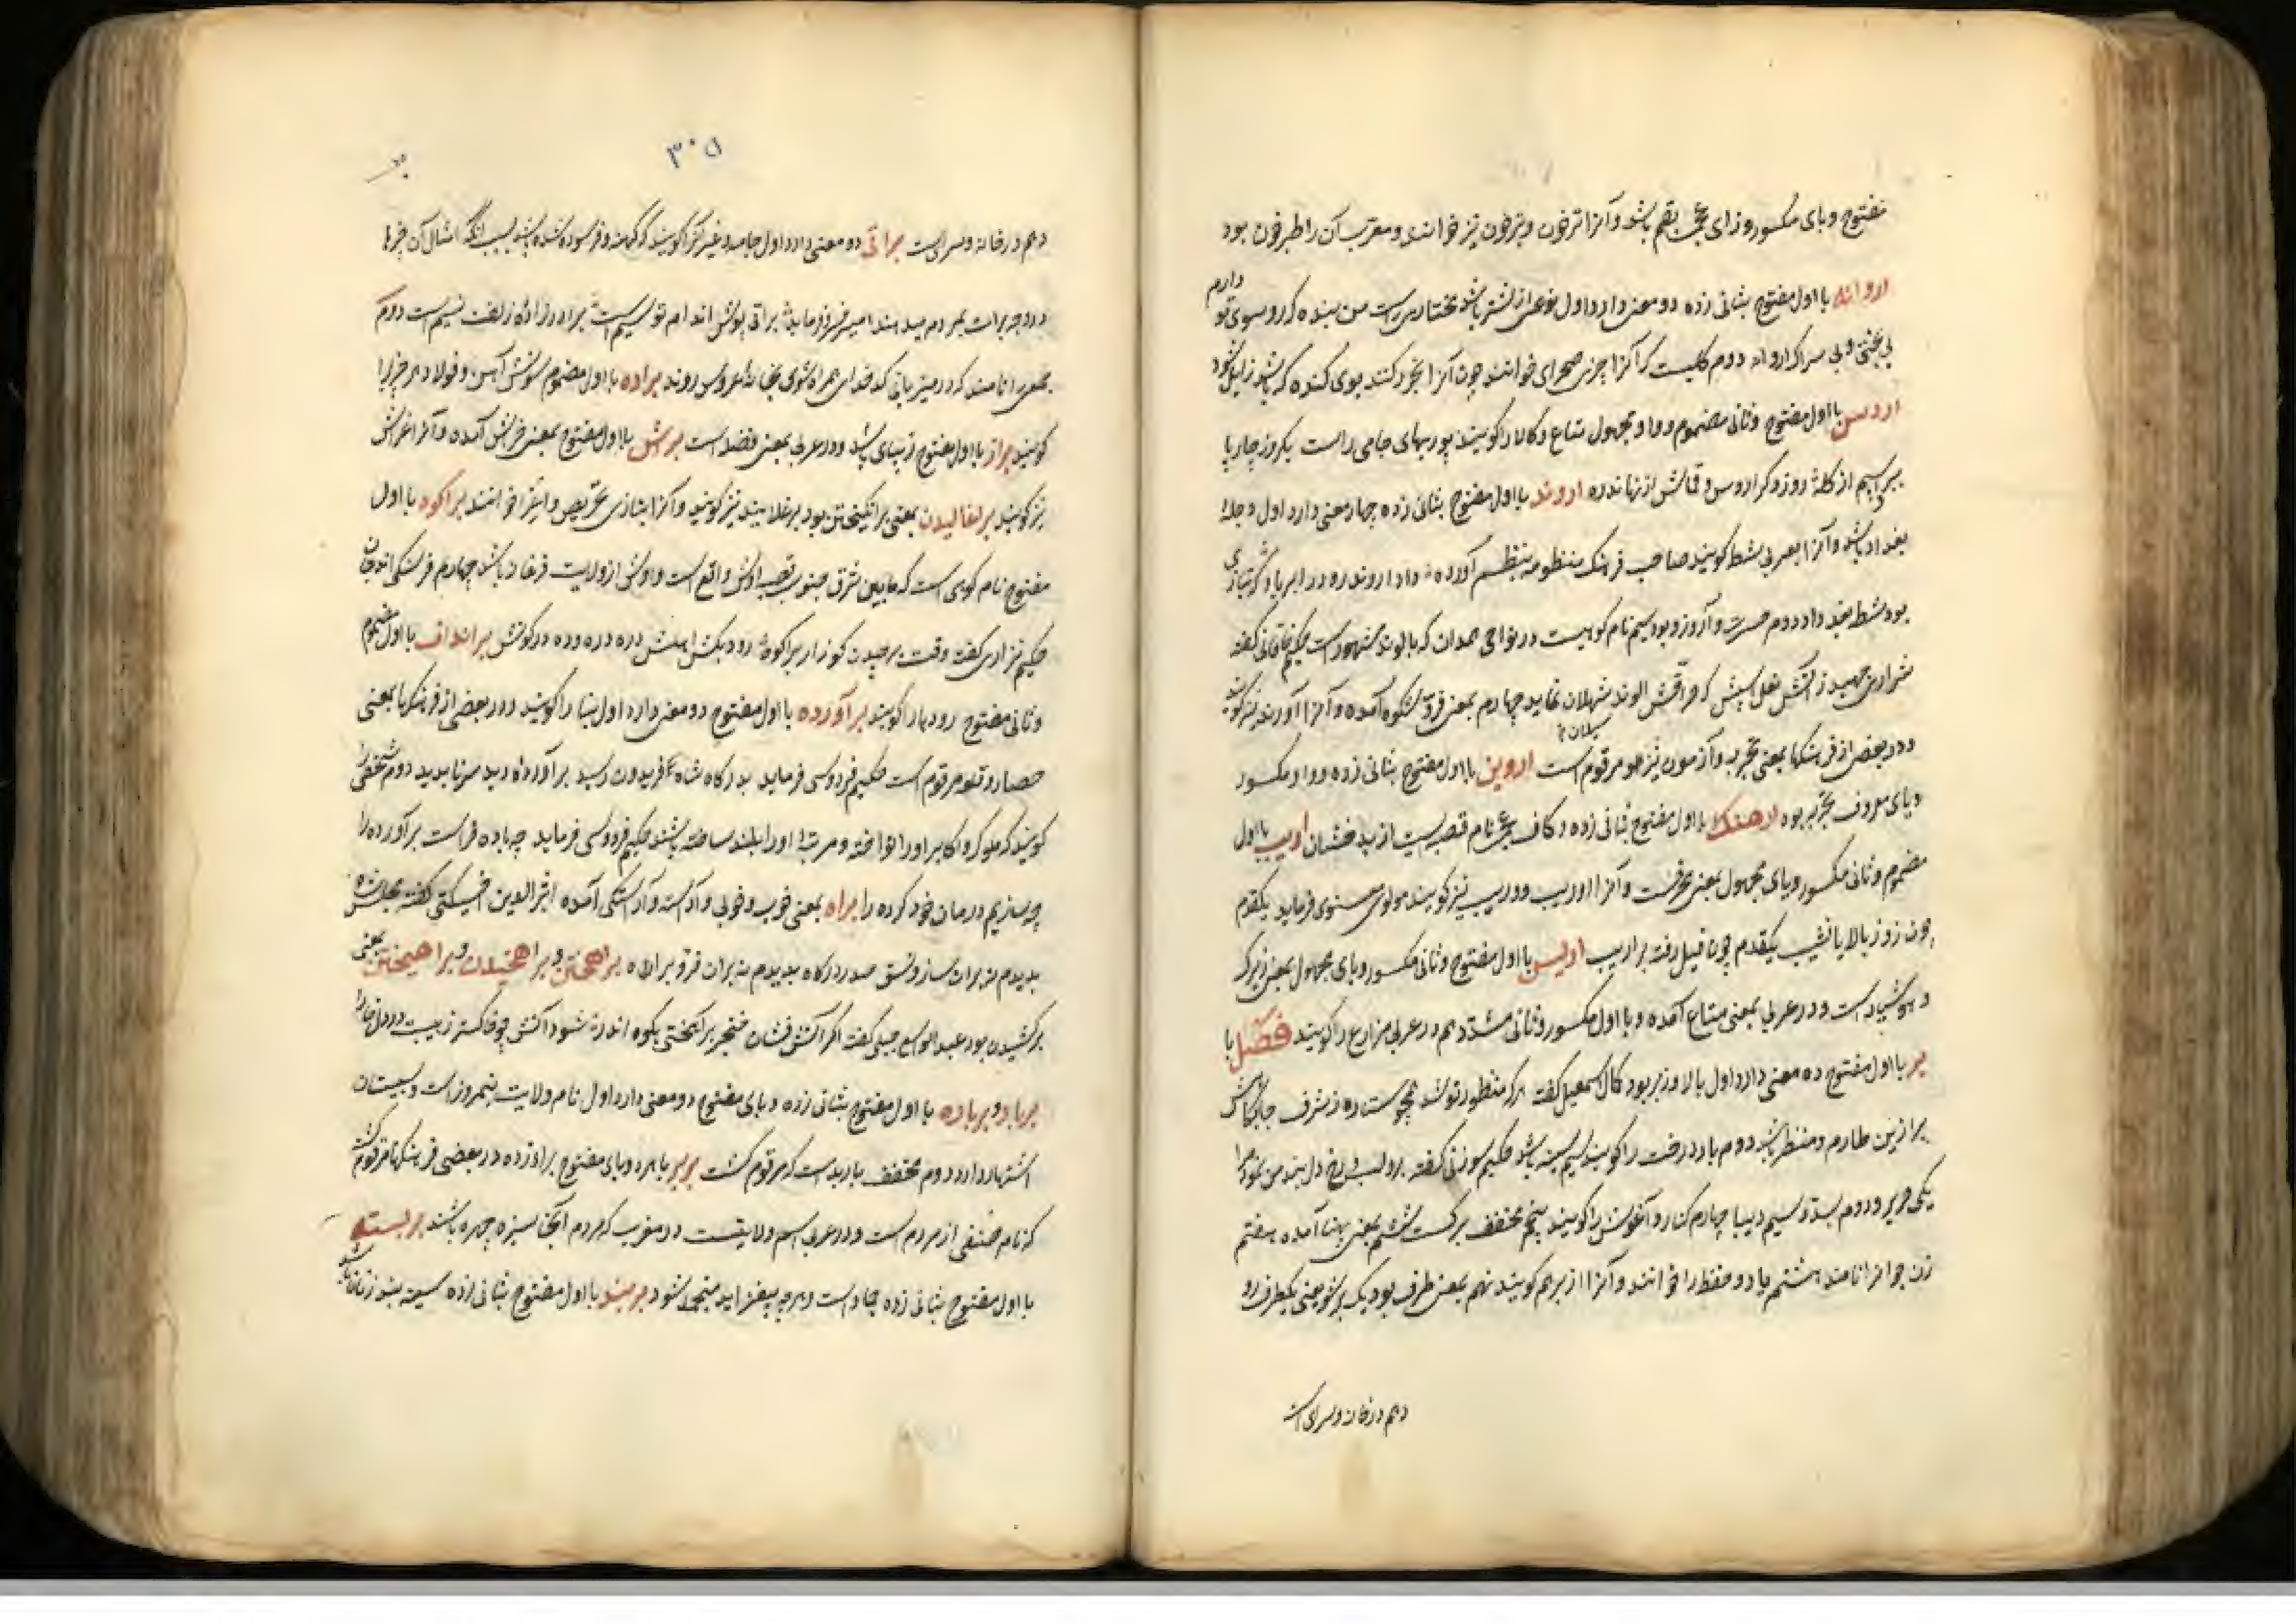 مفتوح و بای مکسور و زای عجمی بقم باشد و آنرا ترخون و بزخون نیز خوانند و معرب آن را طبرخون بود
اروانه با اول مفتوح بثانی زده دو معنی دارد اول نوعی از شتر باشد مختاری راست من بنده که رو سوی تو دارم
بی بختی و بی سراک اروانه دوم کلیست که آنرا خیری صحرای خوانند چون آنرا بخور کنند بوی کنده که باشد زایل شود
اروس با اول مفتوح و ثانی مضموم و واو مجهول متاع و کالا را گویند پوربهای جامی راست یکروز چارپا
ببریم از کله دزد و کر اروس و قماش از نهاندره اروند با اول مفتوح بثانی زده چهار معنی دارد اول دجله
بغداد باشد و آنرا بعربی شط گویند صاحب فرهنک منظومه بنظم آورده دان اروند رود را بر یاد که بتازی
بود شط بغداد دوم حسرت و آرزو بود سیم نام کوهیست در نواحی همدان که بالوند مشهور است حکیم خاقانی گفته
شراری جهید ز آتش نعل اسپش که حراقش الوند شهلان نماید چهارم بمعنی فر و شکوه آمده و آنرا آورند نیز گویند
و در بعضی از فرهنکها بمعنی تجربه و آزمون نیز مرقوم است اروین با اول مفتوح بثانی زده و واو مکسور
و یای معروف تجربه بود ارهنک با اول مفتوح بثانی زده و کاف عجمی نام قصبه ایست از بدخشان اریب با اول
مضموم و ثانی مکسور و یای مجهول بمعنی محرف است و آنرا اوریب و وریب نیز گویند مولوی معنوی فرماید یکقدم
چون روز بالا یا نشیب یکقدم چون فیل رفته بر اریب اریس با اول مفتوح و ثانی مکسور و یای مجهول بمعنی زیرک
و هوشیار است و در عربی بمعنی متاع آمده و با اول مکسور و ثانی مشدد هم در عربی مزارع را گویند فصل با
بر با اول مفتوح ده معنی دارد اول بالا و زبر بود کمال اسمعیل گفته هر که منظور تو شد همچو ستاره ز شرف جایگاهش
برازین طارم و منظر باشد دوم بار درخت را گویند سیم سینه باشد حکیم سوزنی گفته برو لب و رخ دلبند من نمود مرا
یکی حریر و دوم بسد و سیم دیبا چهارم کنار و آغوش را گویند پنجم مخفف برک است ششم بمعنی پهنا آمده هفتم
زن جوانرا نامند هشتم یاد و حفظ را خوانند و آنرا از بر هم گویند نهم بمعنی طرف بود یک بر شو یعنی یکطرف رو
دهم در خانه و سرای است
۳۰۵
دهم در خانه و سراست براتی دو معنی دارد اول جامه و غیر آنرا گویند که کهنه و فرسوده شده باشد بسبب آنکه امثال آن چیزها
در وجه برات بمردم میدهند امیر خسرو فرماید براتی پوش اندام تو سیم است برادرزاده زلفت نسیم است دوم
جمعی را نامند که در میزبانی کدخدای همراه شوی بخانه عروس روند براده با اول مضموم سونش آهن و فولاد و هر چیز را
گویند براز با اول مفتوح زیبای باشد و در عربی بمعنی فضله است برش با اول مفتوح بمعنی خراش آمده و آنرا خراش
نیز گویند برغالیدن بمعنی برانگیختن بود برغلانیدن نیز گویند و آنرا بتازی تحریص و اغرا خوانند براکوه با اول
مفتوح نام کوهی است که مابین شرق جنوب قصبه اوش واقع است و اوش از ولایت فرغانه باشد چهارم فرسنکی اندجان
حکیم نزاری گفته وقت برچیدن کوزار براکوه رود بکش املش دره دره ده در کوتش برانداف با اول مضموم
و ثانی مفتوح روده را گویند برآورده با اول مفتوح دو معنی دارد اول بنا را گویند و در بعضی از فرهنکها بمعنی
حصار و قلعه مرقوم است حکیم فردوسی فرماید بدرکاه شاه آفریدون رسید برآورده دید سر ناپدید دوم شخصی را
گویند که ملوک و اکابر او را نواخته و مرتبه او را بلند ساخته باشند حکیم فردوسی فرماید چه باده فراست برآورده را
چه سازیم درمان خود کرده را براه بمعنی خوب و خوبی و آراسته و آراستکی آمده اثیرالدین اخسیکتی گفته بجا شده
بدیدم نه بران ساز و نسق صدر درکاه بدیدم نه بران فر و براه براهختن و براهختیدن و براهیختن بمعنی
برکشیدن بود عبدالواسع جبلی گفته اگر آتش فشان خنجر براهختی بکوه اندر شود آتش چو خاکستر ز بیمت در دل خارا
برباد و برباده با اول مفتوح بثانی زده و بای مفتوح دو معنی دارد اول نام ولایت نیمروز است و بسیستان
اشتهار دارد دوم مخفف باربد است که مرقوم گشت بربر با هر دو بای مفتوح براء زده در بعضی فرهنکها مرقوم گشته
که نام صنفی از مردم است و در عربی اسم ولایتست در مغرب که مردم آنجا سبزه چهره باشند بربسته
با اول مفتوح بثانی زده جماد است و هرچه بیفزاید منجمد شود بربند با اول مفتوح بثانی زده سینه بند زنان باشد